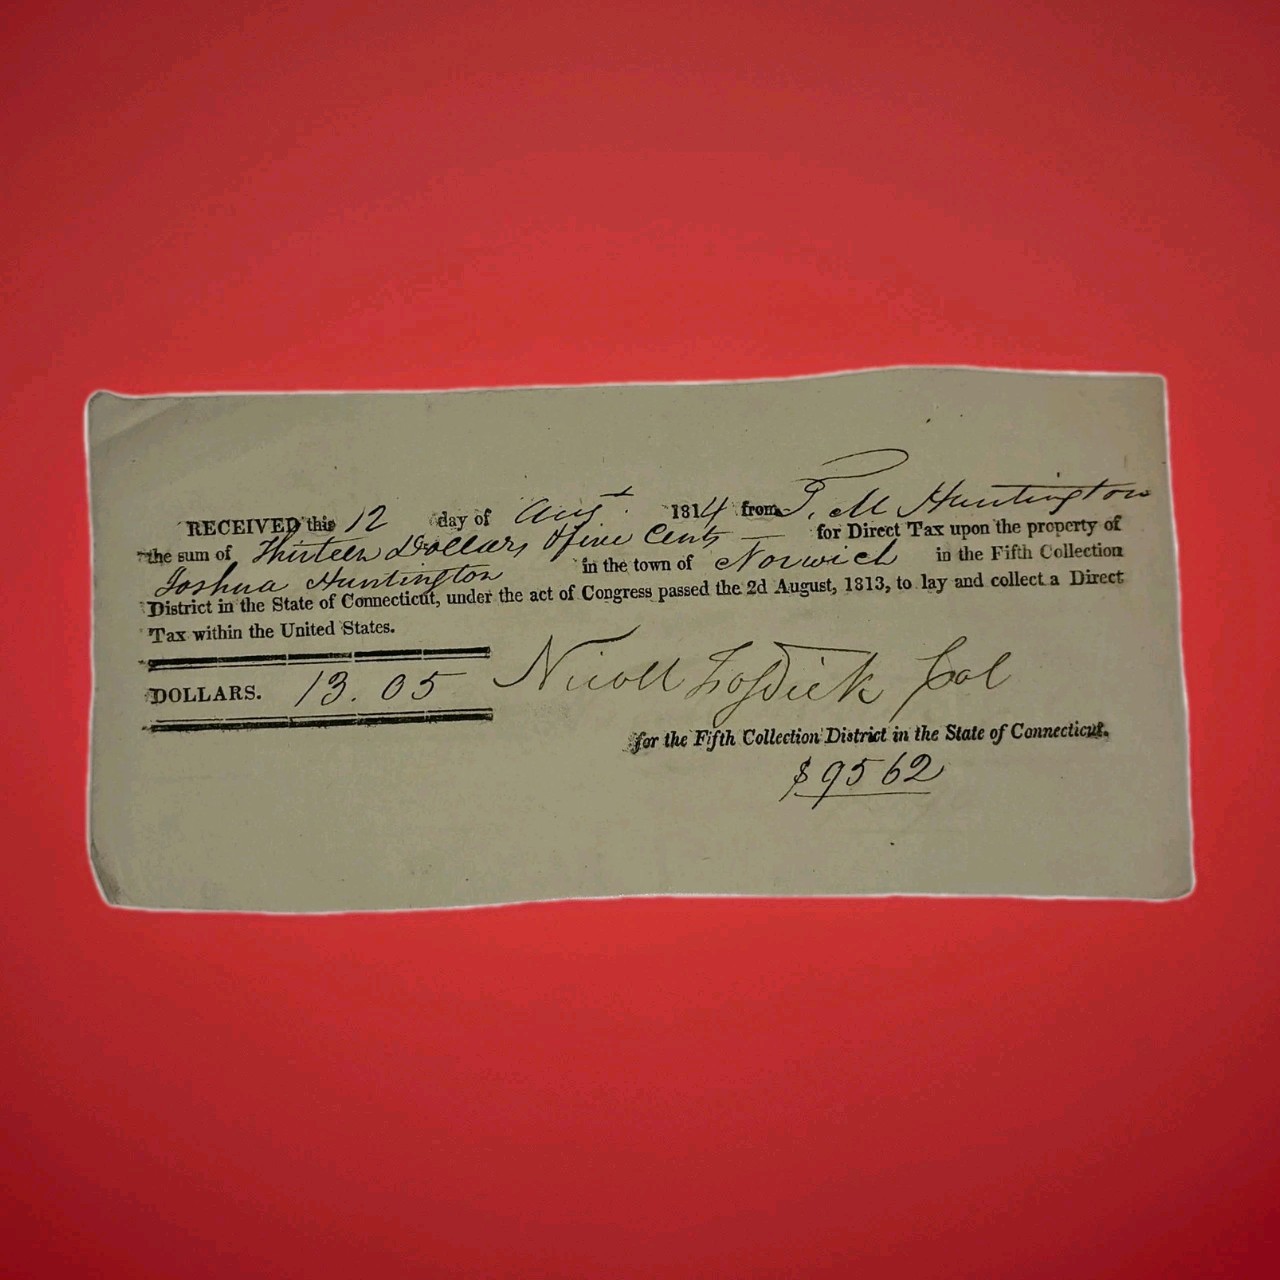 RECEIVED this 12 day of Augt. 1814 from P. M Huntington
the sum of Thirteen Dollars & five Cents — for Direct Tax upon the property of
Joshua Huntington in the town of Norwich in the Fifth Collection
District in the State of Connecticut, under the act of Congress passed the 2d August, 1813, to lay and collect a Direct
Tax within the United States.
DOLLARS. 13.05
Nicoll Fosdick Col
for the Fifth Collection District in the State of Connecticut.
$9562